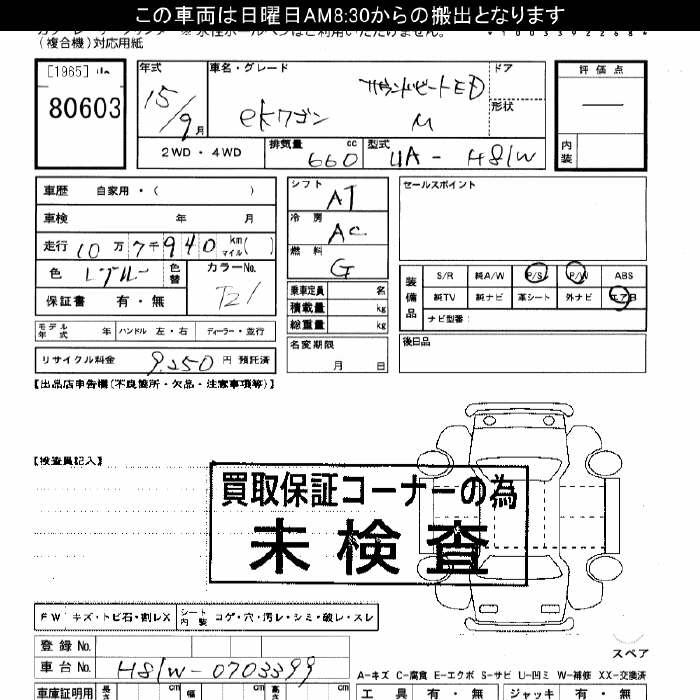 この車両は日曜日AM8:30からの搬出となります
(複合機)対応用紙
[1965]
80603
年式
15/9月
車名・グレード
ekワゴン
サウンドビートED
M
ドア
形状
評価点
内装
2WD・4WD
排気量 660 cc
型式 UA-H81W
車歴 自家用・( )
車検 年 月
走行 10万7千940 km マイル( )
色
色替
カラーNo.
保証書 有・無
シフト AT
冷房 AC
燃料 G
乗車定員 名
積載量 kg
総重量 kg
名変期限
月 日
モデル年式 年
ハンドル 左・右
ディーラー・並行
リサイクル料金 9,250 円 預託済
セールスポイント
装備品
S/R 純A/W P/S P/W ABS
純TV 純ナビ 革シート 外ナビ エアB
ナビ型番:
後日品
【出品店申告欄(不良箇所・欠品・注意事項等)】
【検査員記入】
買取保証コーナーの為
未検査
FW キズ・トビ石・割レX
シート内装 コゲ・穴・汚レ・シミ・破レ・スレ
スペア
登録No.
車台No. H81W-0703399
A-キズ C-腐食 E-エクボ S-サビ U-凹ミ W-補修 XX-交換済
車庫証明用 長さ cm 幅 cm cm
工具 有・無
ジャッキ 有・無